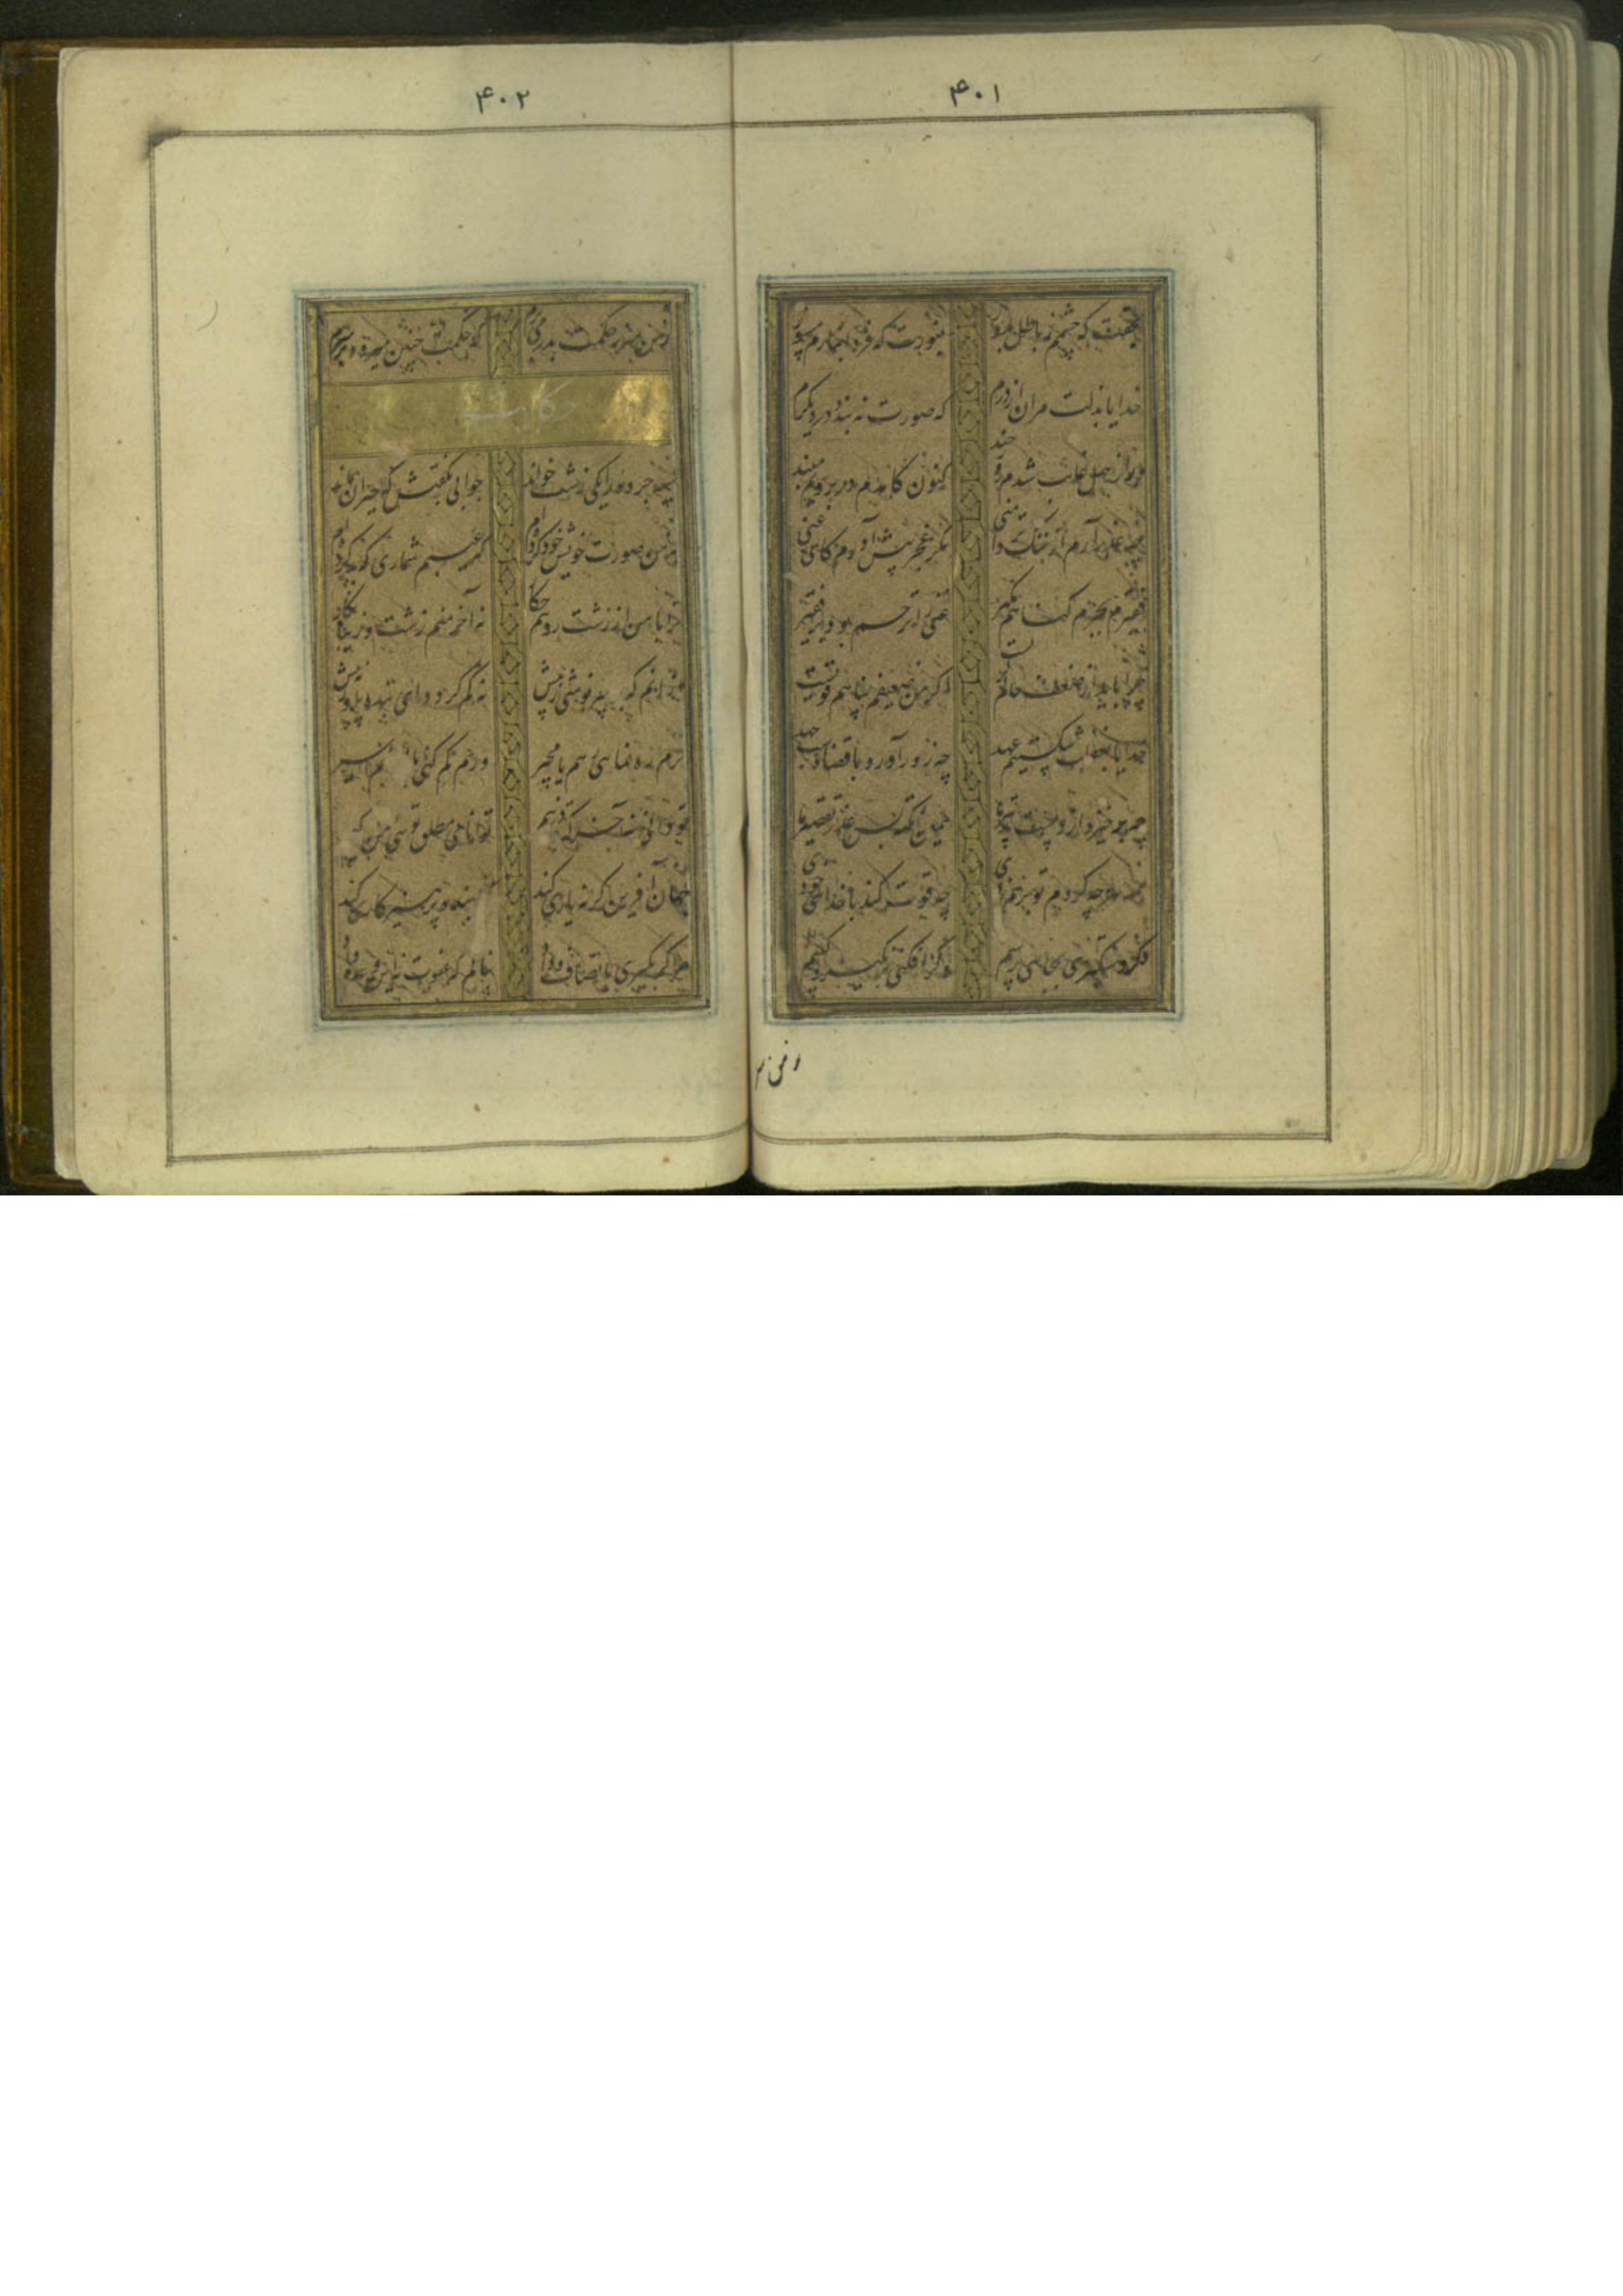 ۴۰۱
بحقت که چشمم ز باطل بدوز بنورت که فردا بنارم مسوز
خدایا بذلت مران از درم که صورت نه بندد در دیگرم
ور از جهل غایب شدم روز چند کنون کامدم در برویم مبند
چه عذر آرم از ننگ تر دامنی مگر عجز پیش آورم کای غنی
فقیرم بجرم گناهم مگیر غنی را ترحم بود بر فقیر
چرا باید از ضعف حالم گریست اگر من ضعیفم پناهم قویست
خدایا بغفلت شکستیم عهد چه زور آورد با قضا دست جهد
چه برخیزد از دست تدبیر ما همین نکته بس عذر تقصیر ما
همه هرچه کردم تو بر هم زدی چه قوت کند با خدایی خودی
دستگیری بجایی رسیم وگر افکنی برنگیرد کسیم
نه من سر
۴۰۲
نه من سر ز حکمت بدر می‌برم که حکمت چنین میرود بر سرم
حکایت
سیه چرده را یکی زشت خواند جوابی بگفتش که حیران بماند
نه من صورت خویش خود کرده‌ام که عیبم شماری که بد کرده‌ام
ترا با من ار زشت رویم چکار نه آخر منم زشت و زیبا نگار
از آنم که بر سر نوشتی ز پیش نه کم گردد ای بنده پرور نه بیش
گرم ره نمایی رسم با خیر ورم گم کنی باز مانم ز سیر
آخر که قادر نیم توانای مطلق توئی من کیم
جهان آفرین گر نه یاری کند کجا بنده پرهیزکاری کند
مرا گر بگیری بانصاف و داد بنالم که عفوت نه این وعده داد